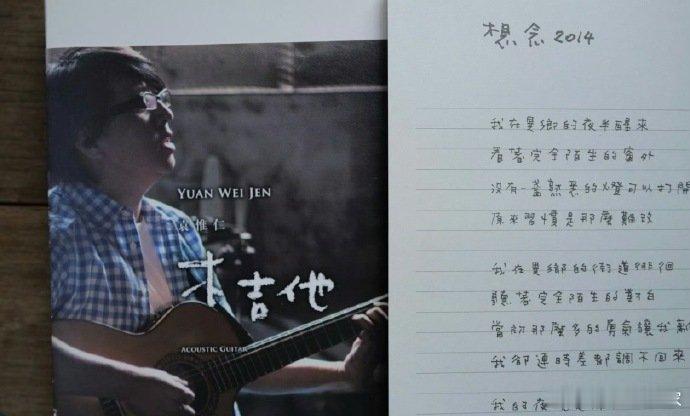 YUAN WEI JEN
袁惟仁
木吉他
ACOUSTIC GUITAR
想念 2014
我在異鄉的夜半醒來
看著完全陌生的窗外
沒有一盞熟悉的燈可以打開
原來習慣是那麼難改
我在異鄉的街道徘徊
聽著完全陌生的對白
當初那麼多的勇氣讓我
我卻連時差都調不回來
我的夜